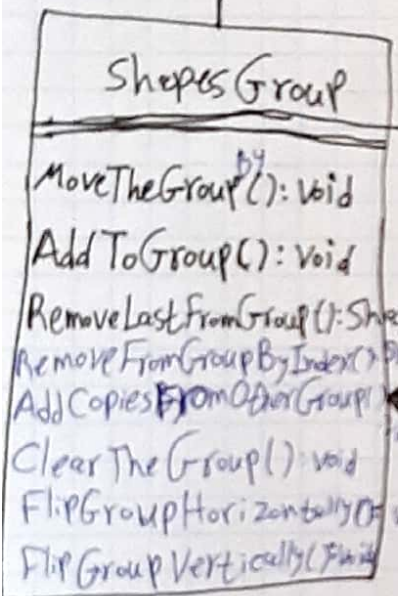 ShapesGroup
MoveTheGroupBy(): void
AddToGroup(): void
RemoveLastFromGroup(): Sha
RemoveFromGroupByIndex():
AddCopiesFromOtherGroup()
ClearTheGroup(): void
FlipGroupHorizontally()
FlipGroupVertically()